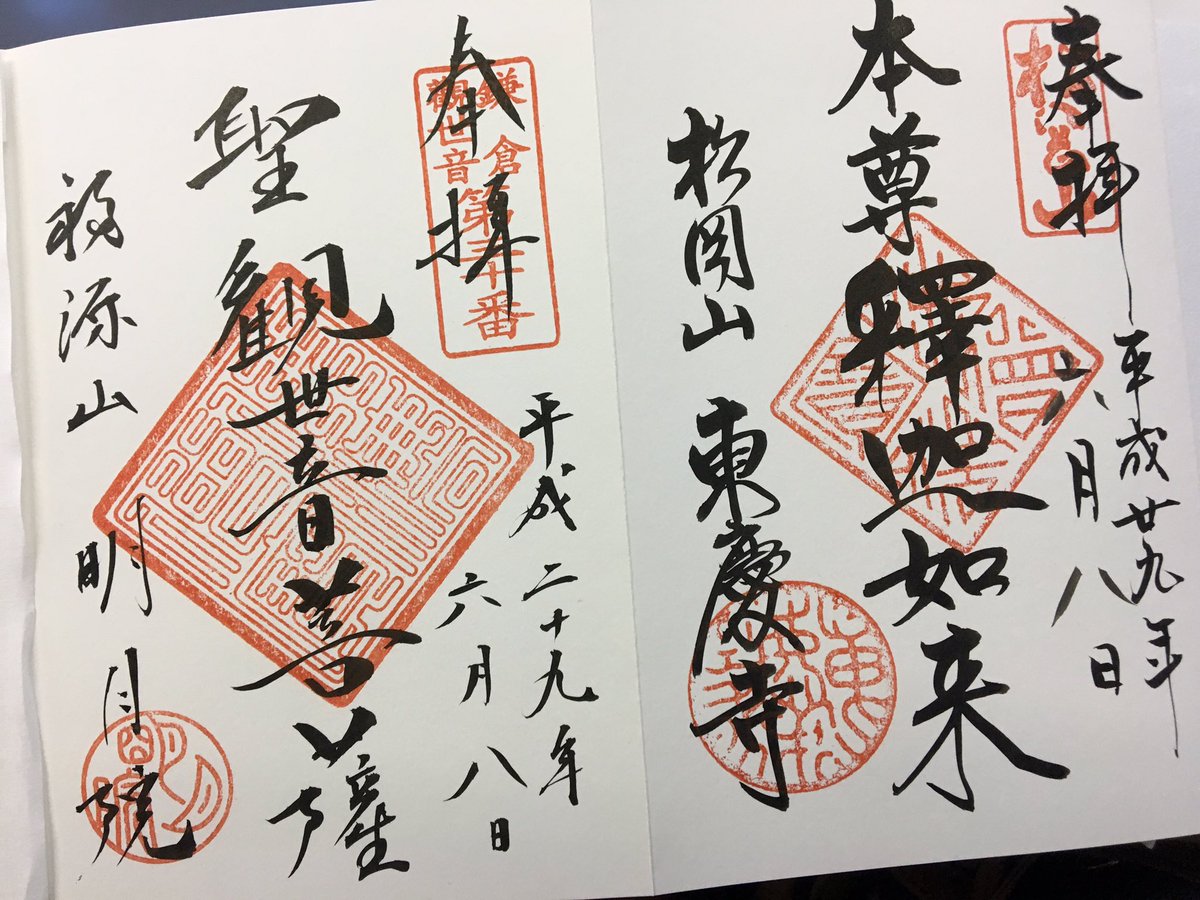 奉拝
平成廿九年
六月八日
本尊釋迦如来
松岡山 東慶寺
奉拝
鎌倉
観世音
第三十番
平成二十九年
六月八日
聖観世音菩薩
福源山 明月院